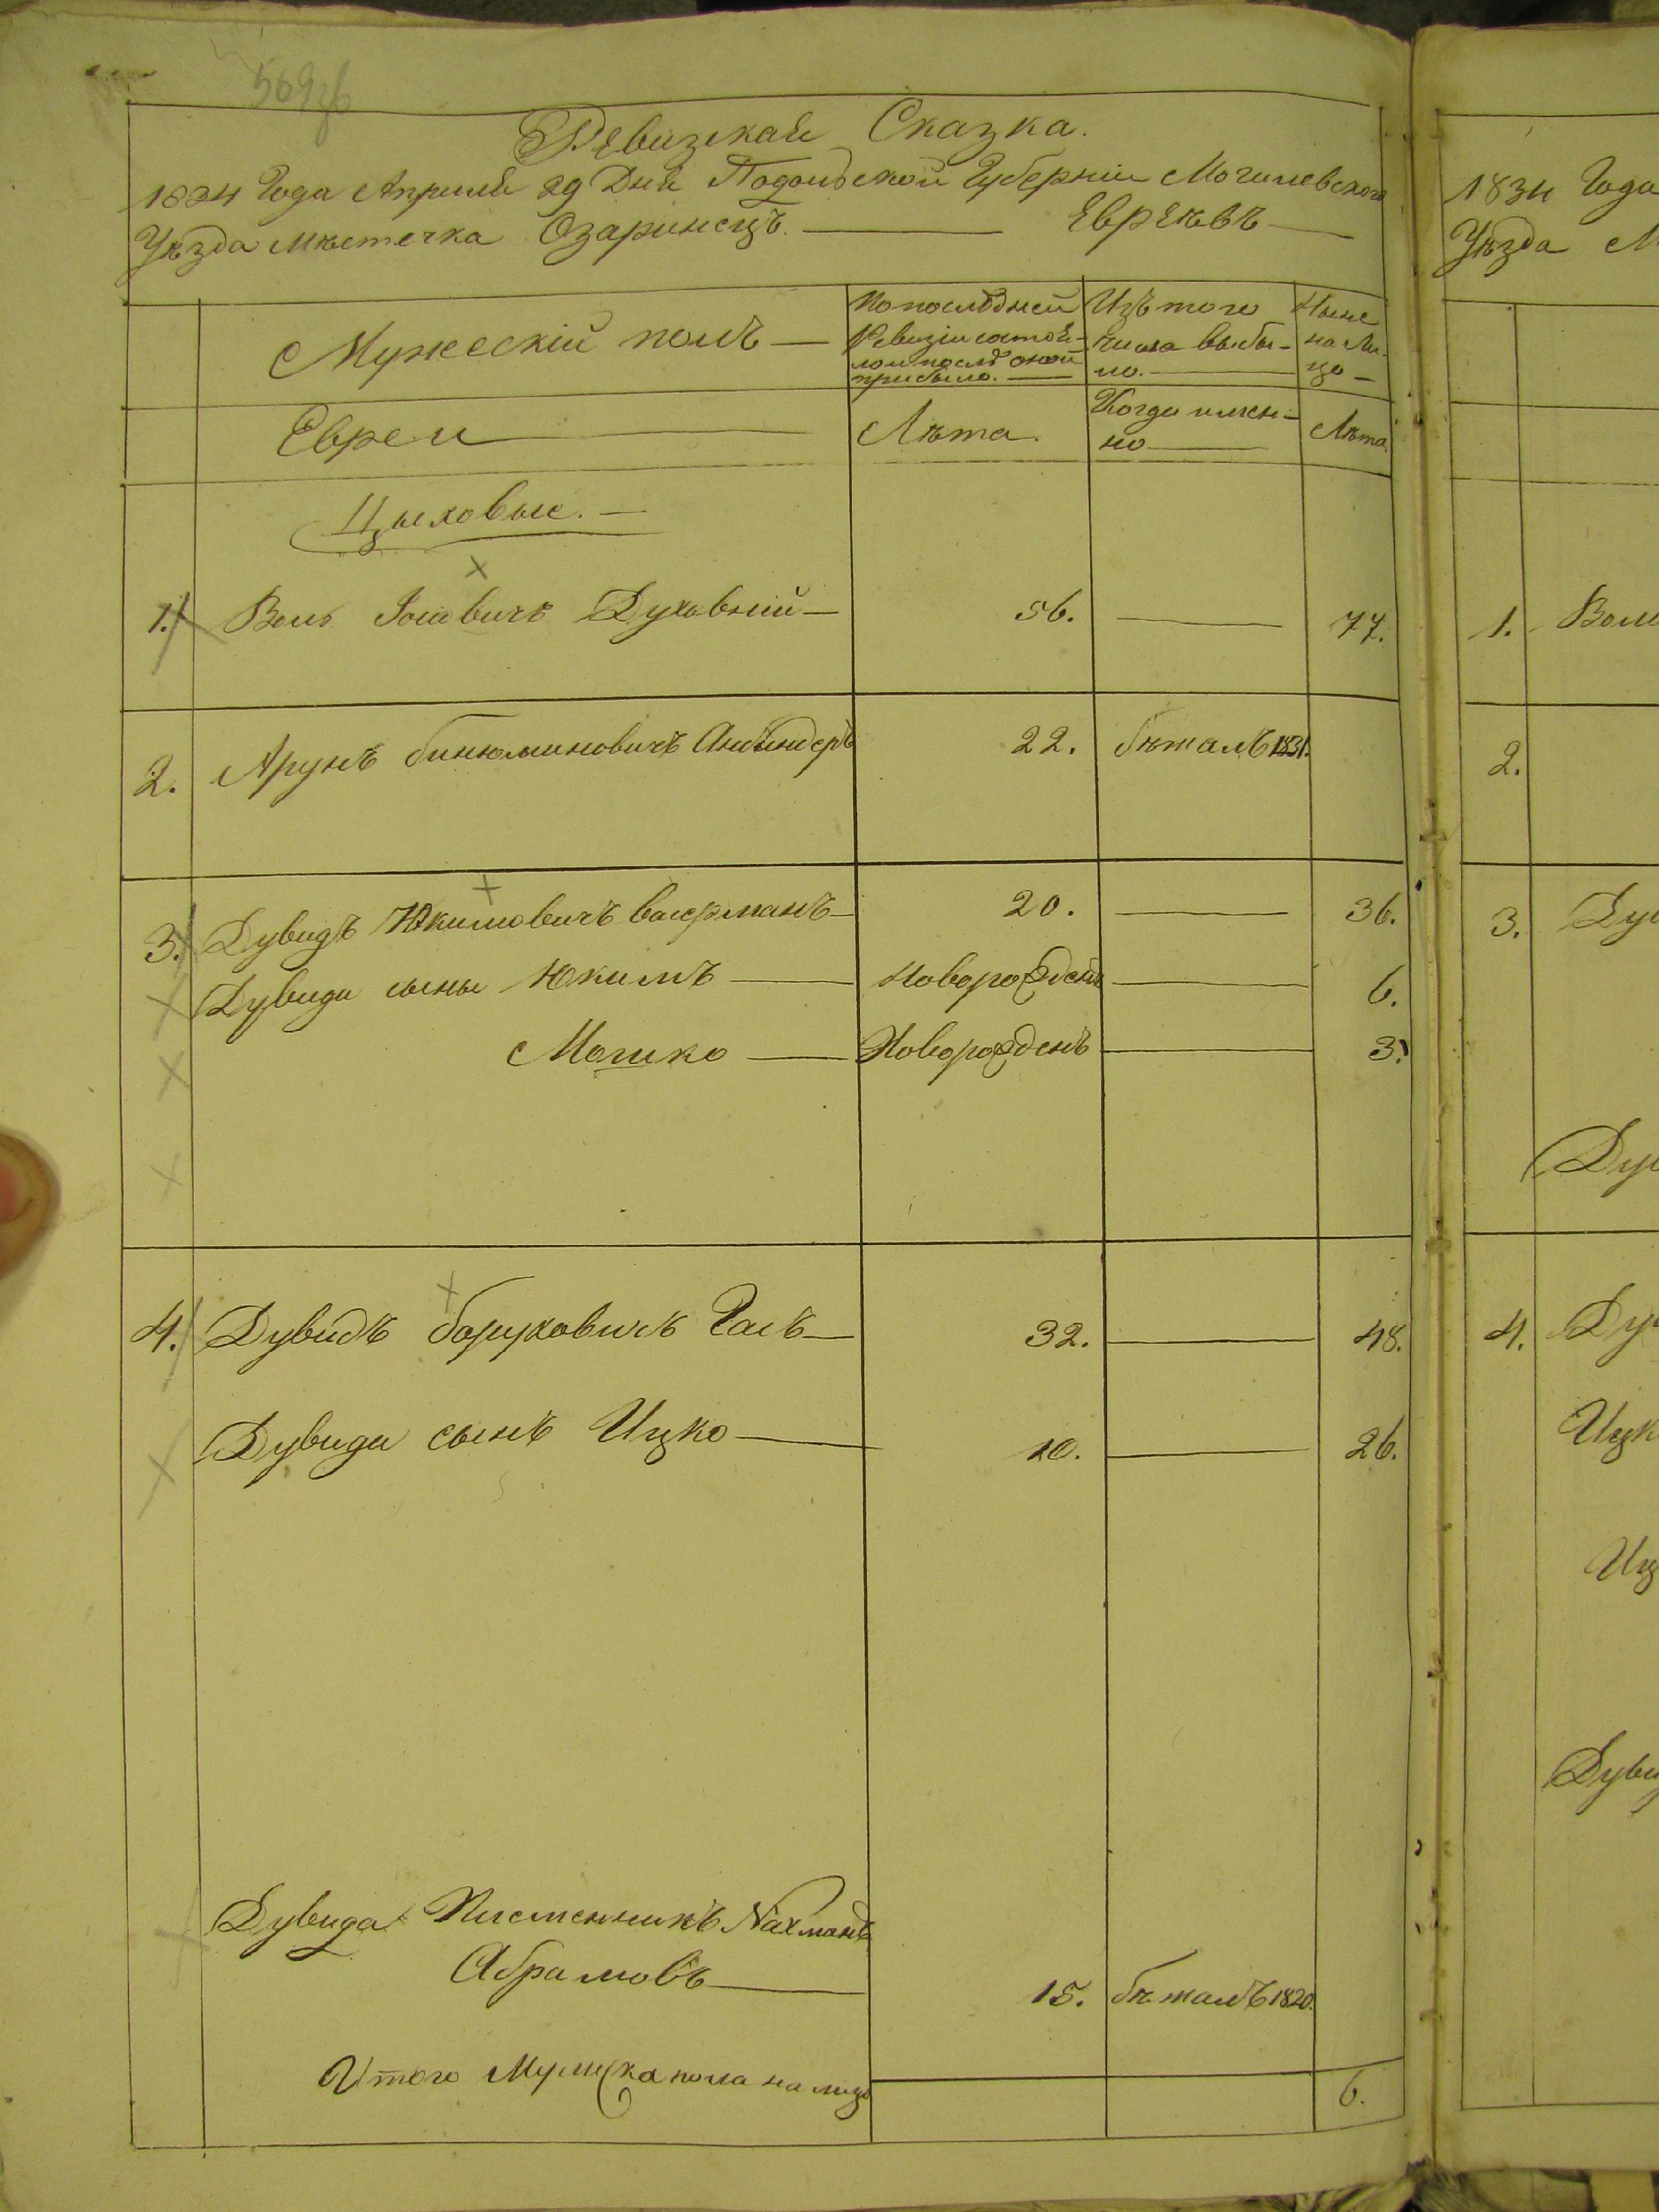 569
Ревизкая Сказка.
1834 Года Апреля 29 Дня Подольской Губернiи Могилевского
Уѣзда мѣстечка Озаринецъ. Евреѣвъ
Мужескiй полъ
По последней Ревизiи состояло и послѣ оной прибыло.
Изъ того числа выбыло.
Ныне на лицо
Евреи
Лѣта.
Когда именно
Лѣта
Цыховые.
1. Воль Iосiовичъ Духовнiй 56. 77.
2. Арунъ бинюминовичъ 22. бѣжалъ 1831.
3. Дувидъ Юкимовичъ васерманъ 20. 36.
Дувида сыны Юкимъ Новорожденъ 6.
Мошко Новорожденъ 3.
4. Дувидъ боруховичъ Гасъ 32. 48.
Дувида сынъ Ицко 10. 26.
Дувида Племенникъ Нахманъ
Абрамовъ 15. бѣжалъ 1820.
Итого Мужеска пола на лицо 6.
1834 Года
Уѣзда М
1. Воль
2.
3. Дув
Дув
4. Дув
Ицк
Иц
Дуви